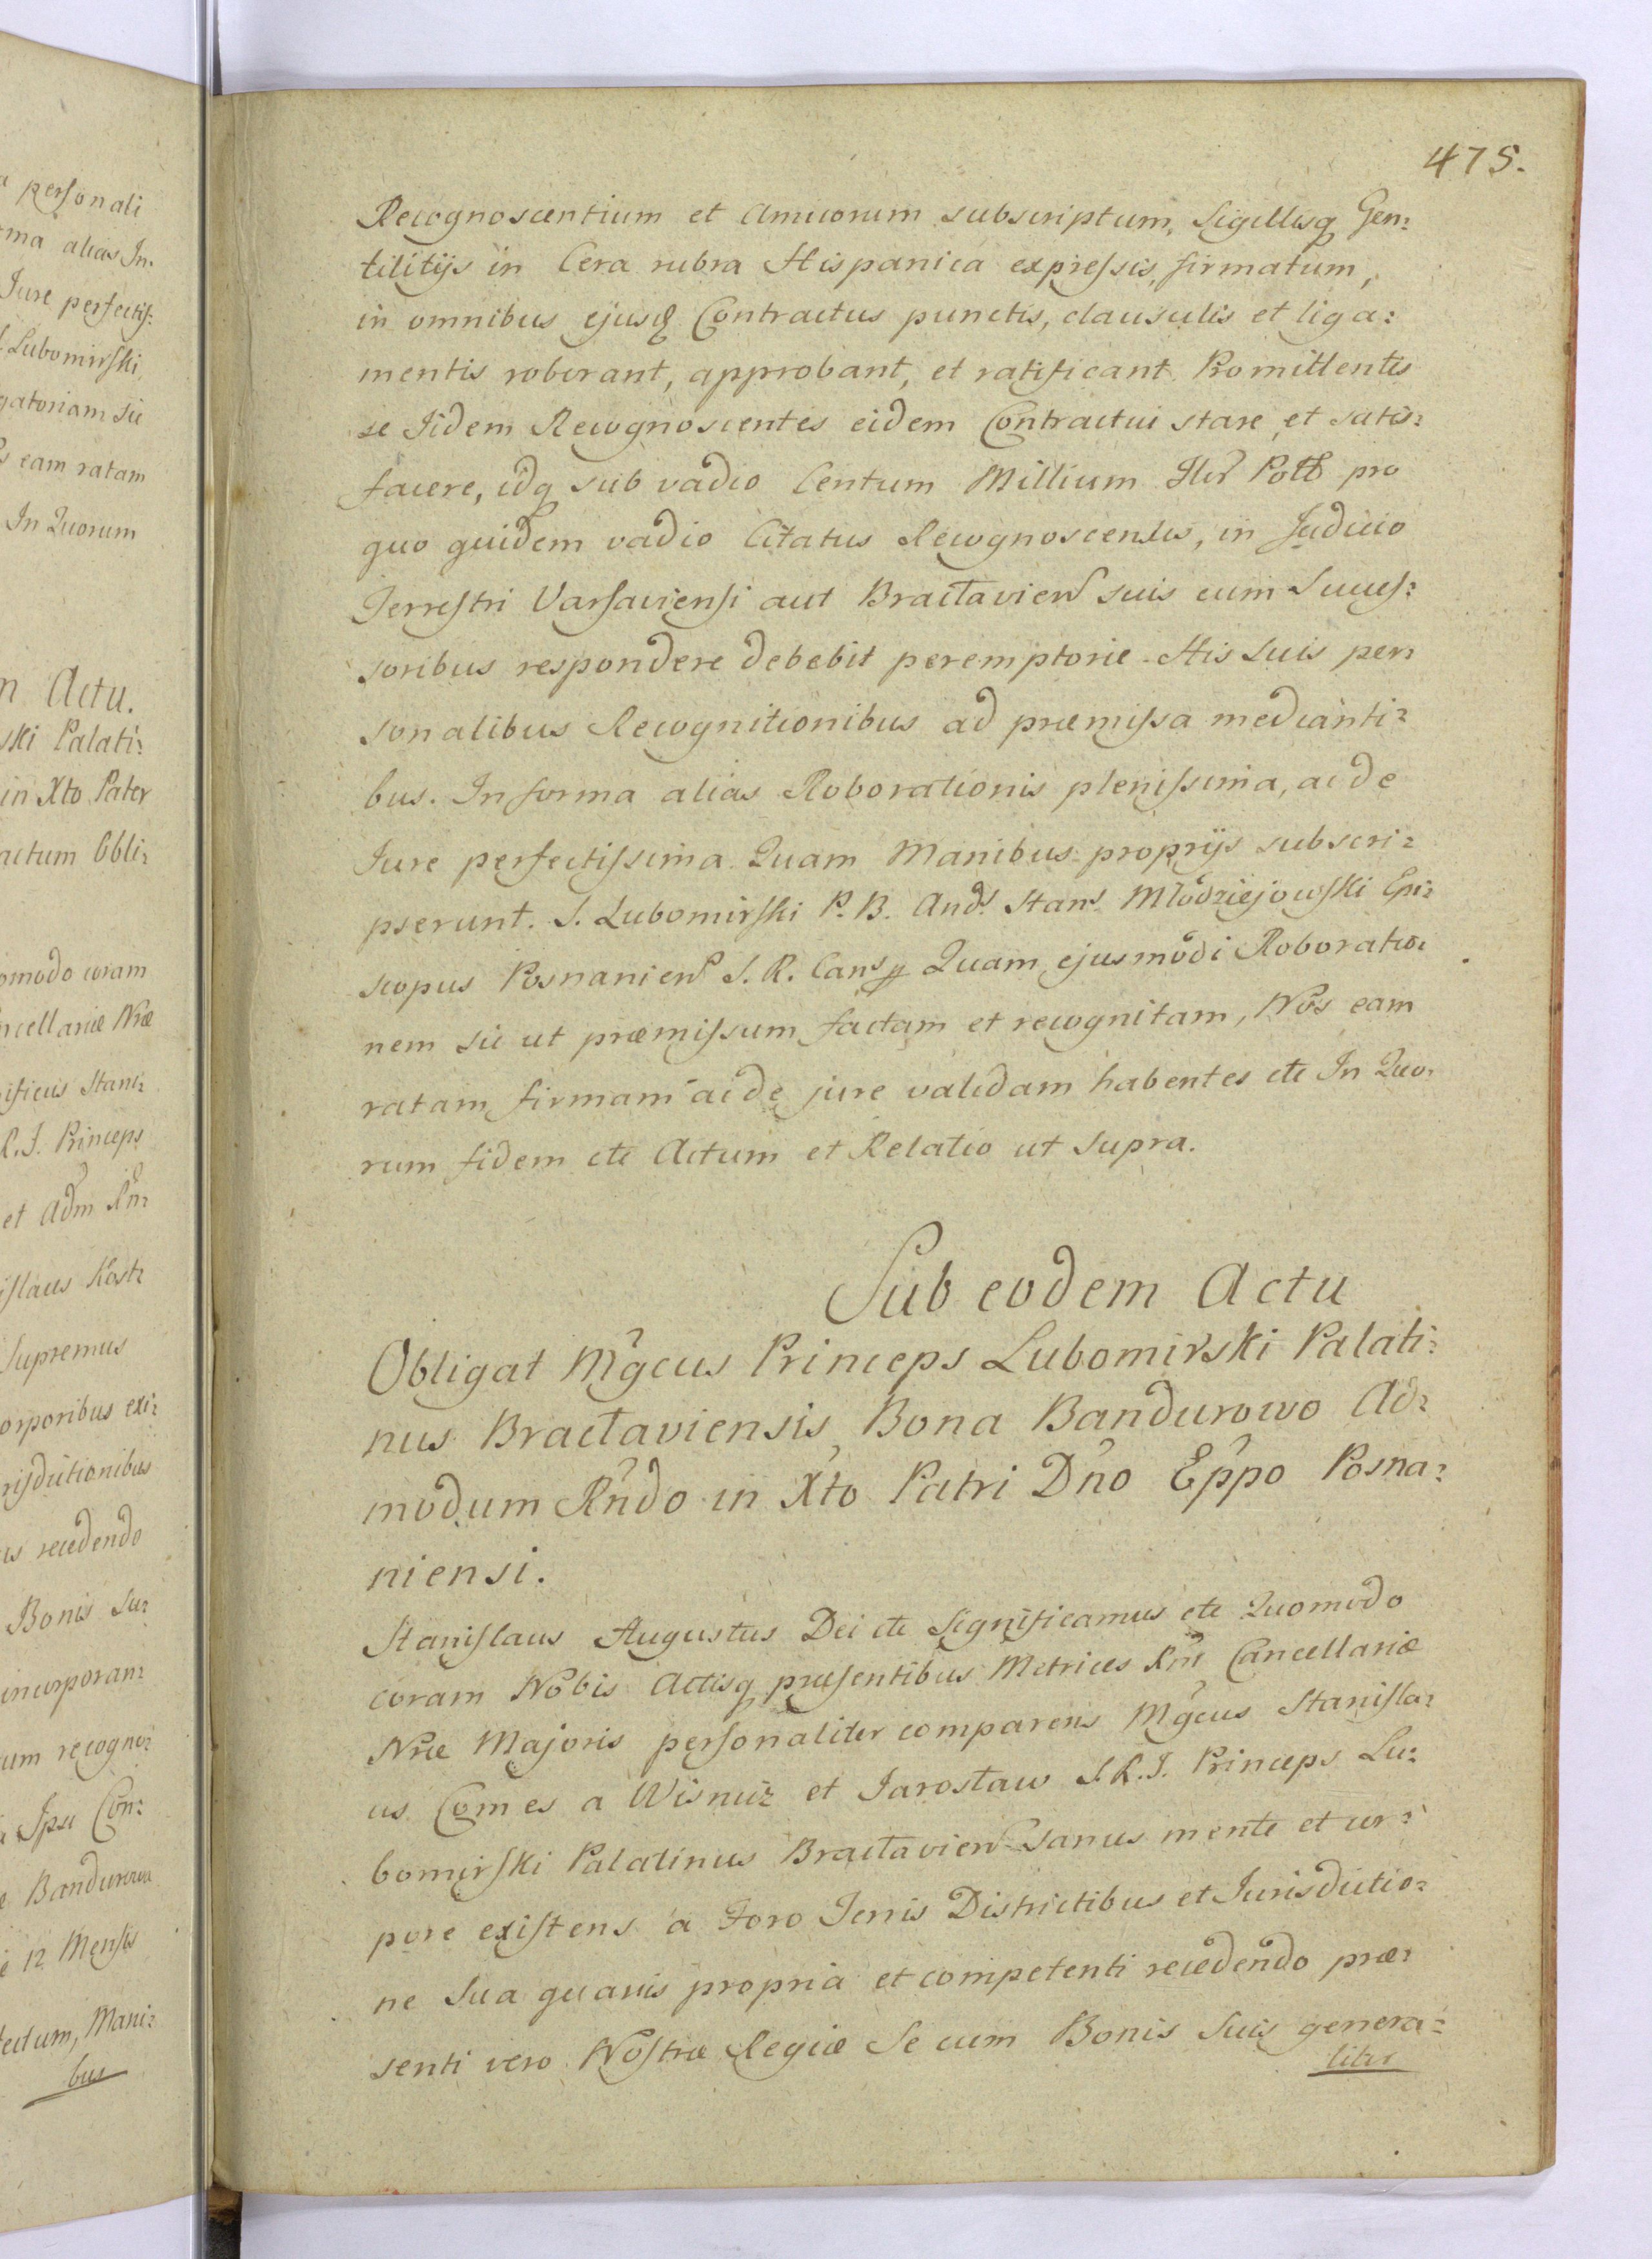 475.
Recognoscentium et Amicorum subscriptum, Sigillisq Gen:
tilitijs in Cera rubra Hispanica expressis, firmatum,
in omnibus ejusq Contractus punctis, clausulis et liga:
mentis roborant, approbant, et ratificant. Promittentes
se Iidem Recognoscentes eidem Contractui stare, et satis:
facere, idq sub vadio Centum Millium Flor Poll pro
quo quidem vadio Citatus Recognoscentes, in Judicio
Terrestri Varsaviensi aut Bracłavien suis cum Succes:
soribus respondere debebit peremptorie. His Suis per:
sonalibus Recognitionibus ad præmissa medianti:
bus. In forma alias Roborationis plenissima, ac de
Jure perfectissima. Quam Manibus proprijs subscri:
pserunt. S. Lubomirski P. B. Ands Stans Młodziejowski Epi:
scopus Posnanien S. R. Cans Quam ejusmodi Roboratio:
nem sic ut præmissum factam et recognitam, Nos eam
ratam firmam ac de jure validam habentes etc In Quo:
rum fidem etc Actum et Relatio ut Supra.
Sub eodem Actu
Obligat Mgcus Princeps Lubomirski Palati:
nus Bracłaviensis Bona Bandurowo Ad:
modum Rndo in Xto Patri Dno Eppo Posna:
niensi.
Stanislaus Augustus Dei etc Significamus etc Quomodo
coram Nobis Actisq præsentibus Metrices Rni Cancellariæ
Nræ Majoris personaliter comparens Mgcus Stanisla:
us Comes a Wisnicz et Jarosław S.R.I. Princeps Lu:
bomirski Palatinus Bracłavien sanus mente et cor:
pore existens a Foro Terris Districtibus et Jurisdictio:
ne Sua quavis propria et competenti recedendo præ:
senti vero Nostræ Regiæ Se cum Bonis Suis genera:
liter